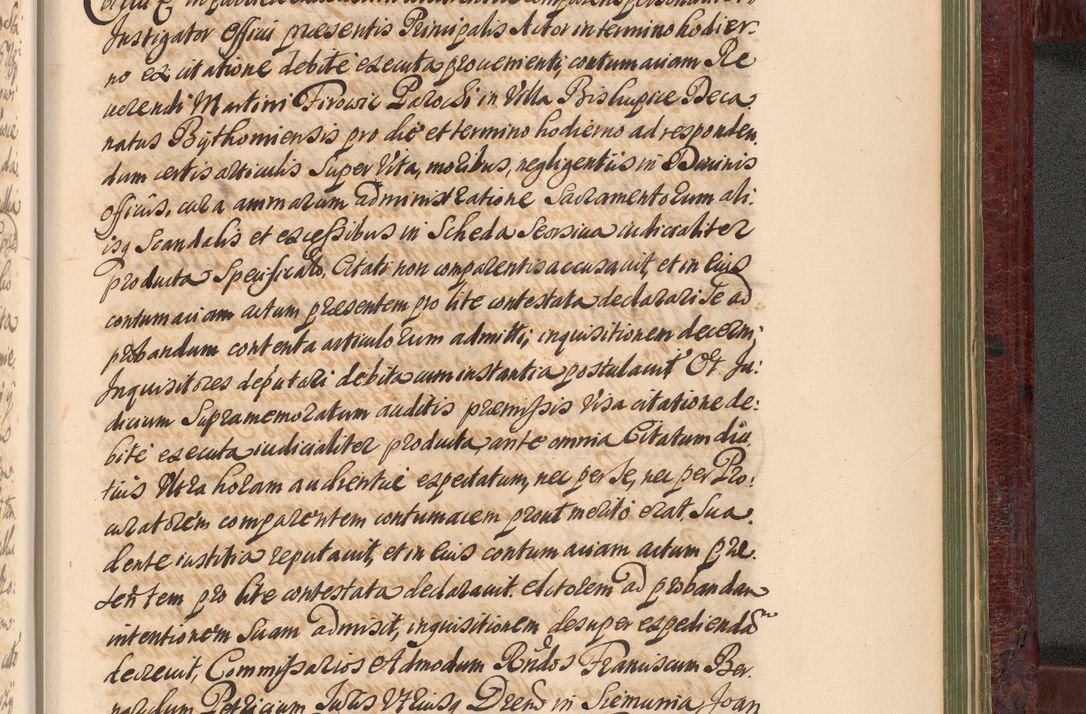 Instigator Officii præsentis Principalis Actor in termino hodier:
no ex citatione debitè executa proveniente, contumaciam Re
verendi Martini Firowic Parochi in Villa Biskupice Deca
natus Bythomiensis pro die et termino hodierno ad responden
dum certis articulis Super Vita, moribus, negligentiis in Divinis
officiis, cura animarum administratione Sacramentorum ali
isq Scandalis et excessibus in Scheda Seorsiva iudicialiter
producta Specificato, Citati non comparentis accusavit, et in eius
contumaciam actum præsentem pro lite contestata declarari Se ad
probandum contenta articulorum admitti, inquisitionem decerni,
Inquisitores deputari debita cum instantia postulavit Et Ju:
dicium Supramemoratum auditis præmissis Visa citatione de:
bitè executa iudicialiter producta, ante omnia Citatum diu
tius Ultra horam audientiæ expectatum, nec per Se, nec per Pro:
curatorem comparentem contumacem prout merito erat Sua
dente iustitia reputavit, et in eius contumaciam actum præ:
sentem pro lite contestata declaravit. Actorem ad probandam
intentionem Suam admisit, inquisitionem desuper expediendã
decrevit, Commissarios Admodum Rndos Franciscum Ber
nardum Petricium Juris Utriusq Drem in Siemunia Joan